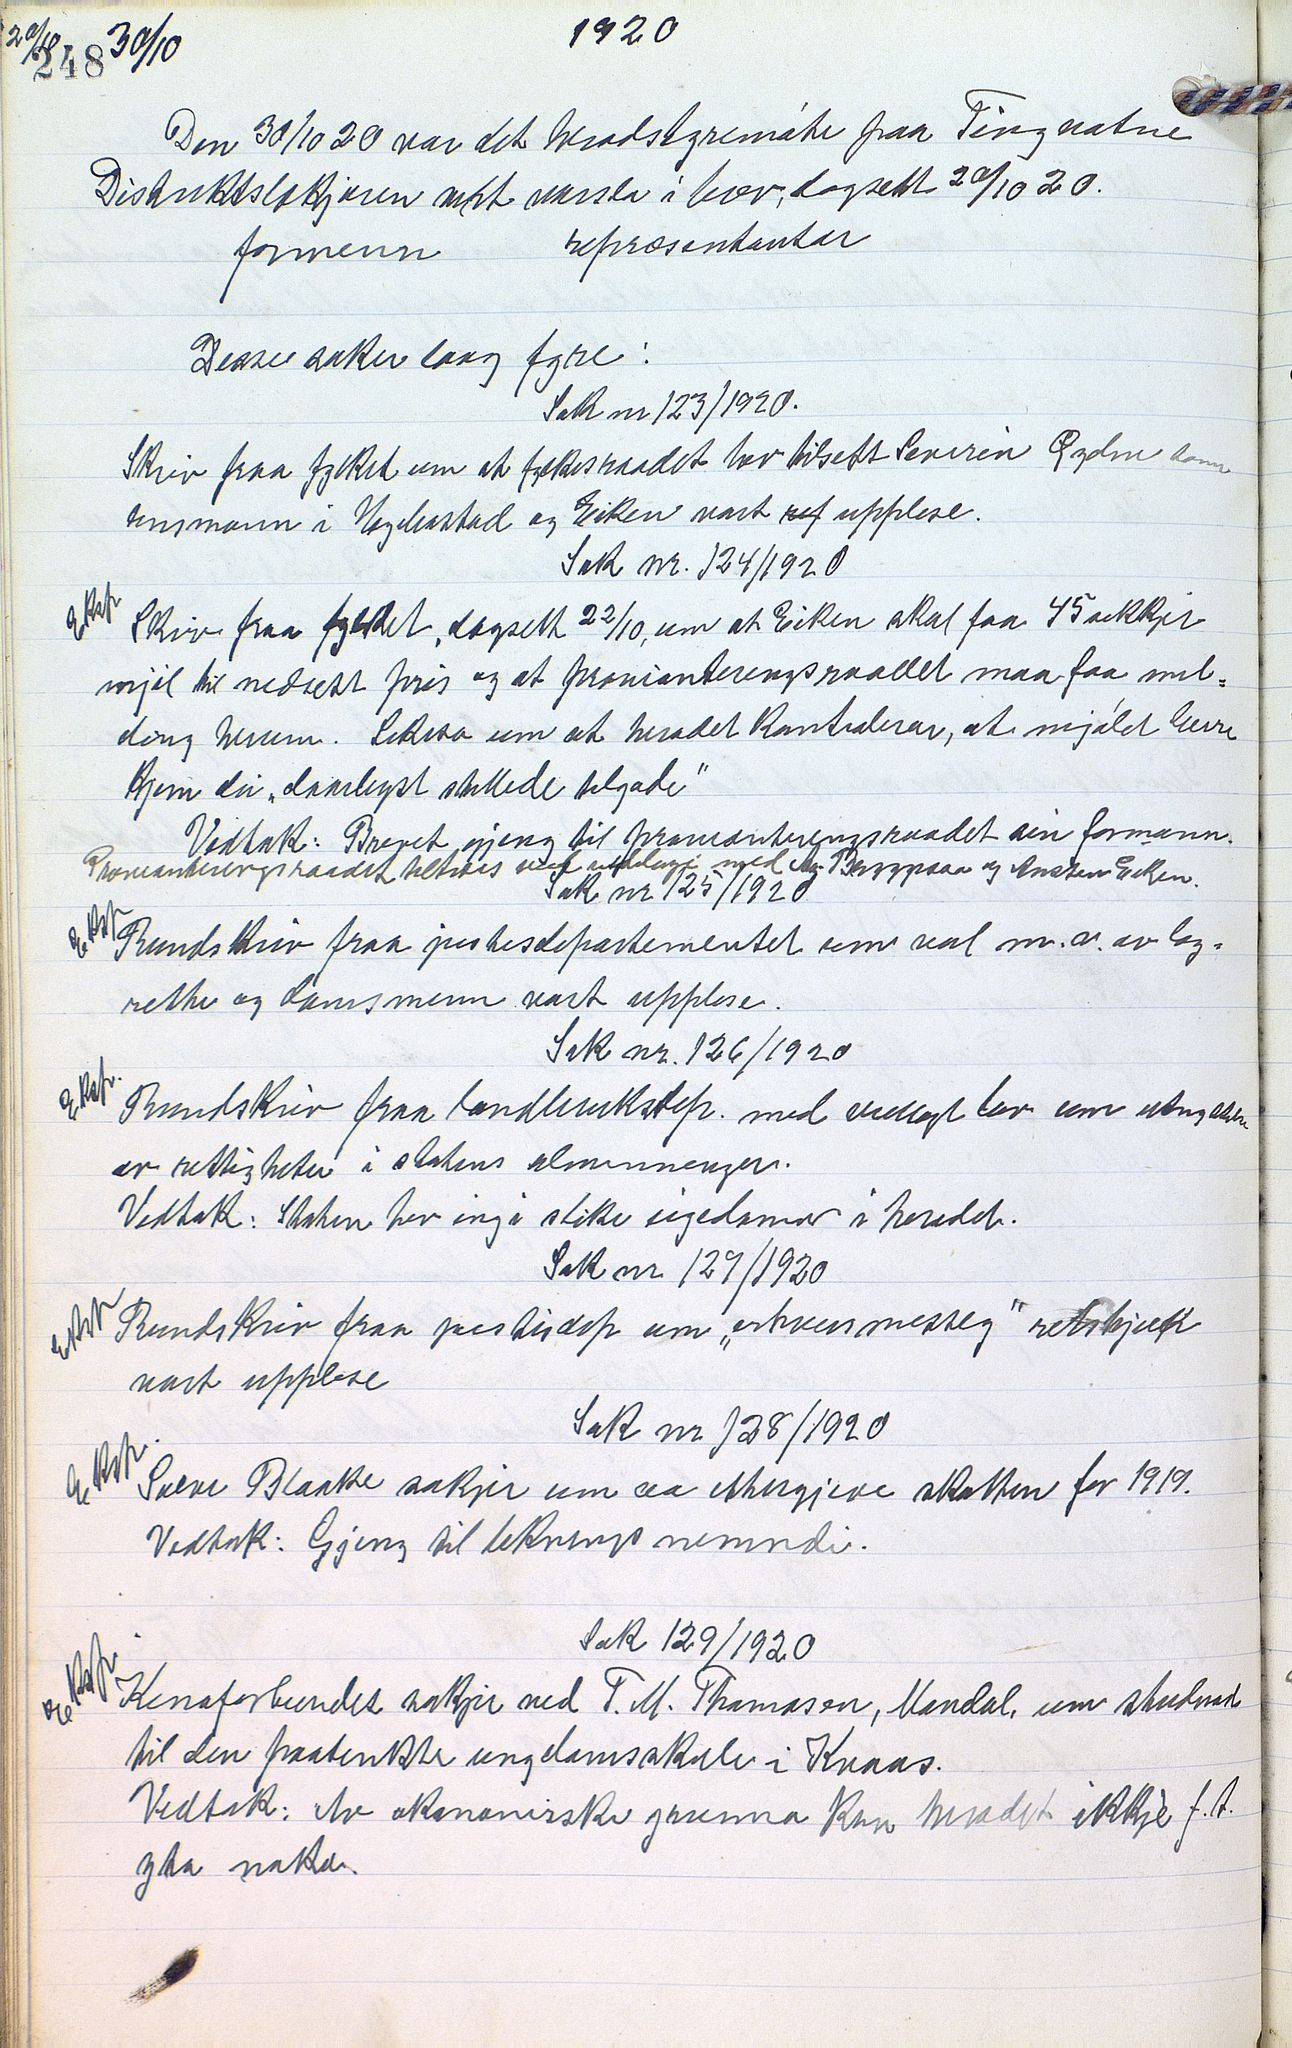 20/10 30/10
248
1920
Den 30/10 20 var det heradstyremöte paa Tingvatne
Distriktslækjaren vart varsla i brev, dagsett 20/10 20.
formenn representantar
Desse saker laag fyre:
Sak nr 123/1920.
Skriv fraa fylket um at fylkesraadet hev tilsett Severin som
lensmann i Hægbostad og Eiken vart ref upplese.
Sak nr. 124/1920
Eksp. Skriv fraa fylket, dagsett 22/10, um at Eiken skal faa 45 sekkjer
mjöl til nedsett pris og at provianteringsraadet maa faa mel=
ding herum. Likeso um at heradet kontrolerar, at mjölet berre
kjem dei „daarlegst stillede tilgode"
Vedtak: Brevet gjeng til provianteringsraadet sin formann.
Provianteringsraadet tiltrædes med Bryggesaa og Austen Eiken.
Sak nr 125/1920
Eksp. Rundskriv fraa justisdepartementet um val m.v. av lag=
rette og domsmenn vart upplese.
Sak nr. 126/1920
Eksp. Rundskriv fraa landbruksdep. med vedlagt lov um
av rettigheter i statens almenninger.
Vedtak: Staten hev ingi slike eigedomar i heradet.
Sak nr 127/1920
Eksp Rundskriv fraa justisdep um „erhvervsmessig" retshjelp
vart upplese
Sak nr 128/1920
Eksp. Blaake søkjer um aa ettergjeve skatten for 1919.
Vedtak: Gjeng til liknings nemndi.
Sak 129/1920
Eksp. Kinaforbundet søkjer ved T. M. Thomasen, Mandal, um studnad
til den paatenkte ungdomsskule i Kvaas.
Vedtak: Av økonomiske grunna kan heradet ikkje f. t.
yta noko.